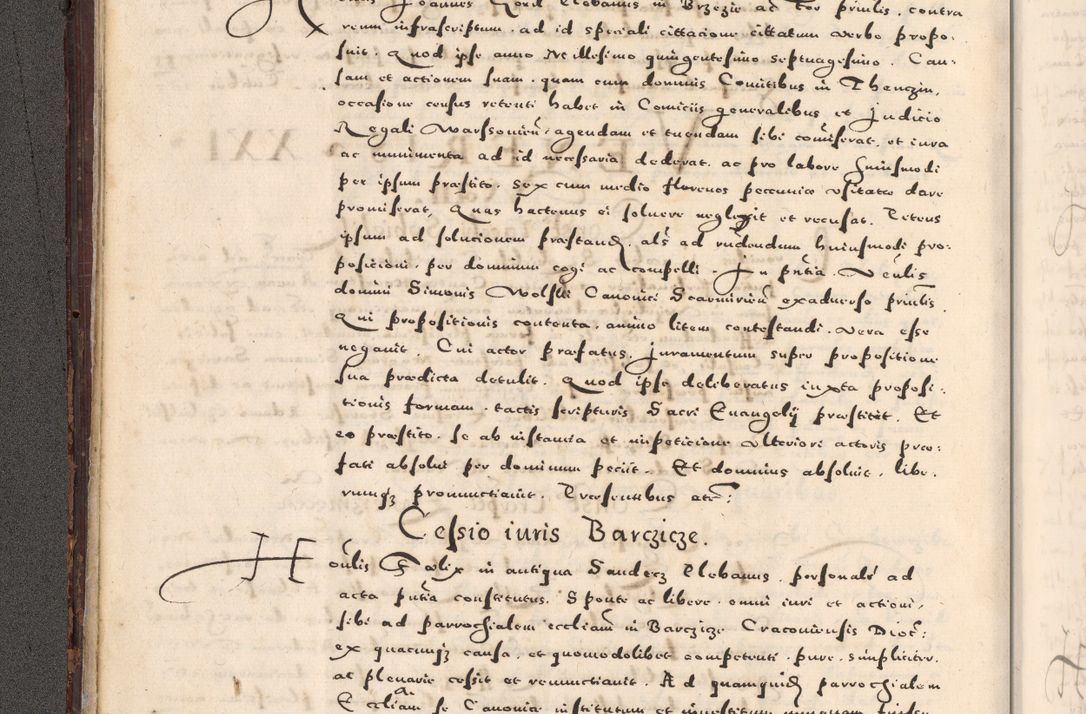 Joannes Plebanus in Brzezie ac Actor priulis. contra
reum infrascriptum. ad id speciali cittacione cittatum verbo propo-
suit. Quod ipse anno Millesimo quingentesimo septuagesimo. Cau-
sam et actionem suam. quam cum dominis Comitibus in Thenczin,
occasione census retenti habet in Comiciis generalibus et Judicio
Regali Warssovien̄. agendam et tuendam sibi com̄iserat. et iura
ac munimenta ad id necessaria dederat. ac pro labore huiusmodi
per ipsum præstito. sex cum medio florenos pecuniæ usitatæ dare
promiserat, Quas hactenus ei soluere neglexit et recusat. Petens
ipsum ad solucionem præstand. als̄ ad r̄ndendum huiusmodi pro-
posicioni. per dominum cogi ac compelli. In pn̄tia. Ven̄lis
domini Simonis Wolski Canonici Scarmirien̄ exaduerso priulis.
Qui propositionis contenta. animo litem contestandi. vera esse
negauit. Cui actor præfatus. Juramentum super propositione
sua prædicta detulit. Quod ipse deliberatus iuxta proposi-
tionis formam. tactis scripturis Sacri Euangelij præstitit. Et
eo præstito. se ab instantia et impeticione vlteriori actoris præ-
fati absolui per dominum peciit. Et dominus absoluit. libe-
rumqȝ pronunctiauit. Præsentibus atē:
Cessio iuris Barczicze.
Hon̄lis Fœlix in antiqua Sandecz Plebanus. personalr̄ ad
acta pn̄tia constitutus. Sponte ac libere. omni iuri et actioni,
sibi ad parrochialem eccliam̄ in Barczicze Cracouiensis Dioc̄:
ex quacunqȝ causa. et quomodolibet competenti. pure. simpliciter.
ac plenarie cessit et renunctiauit. Ad quamquid parrochialem
Eccliam se Canonice institutum et inuestitum